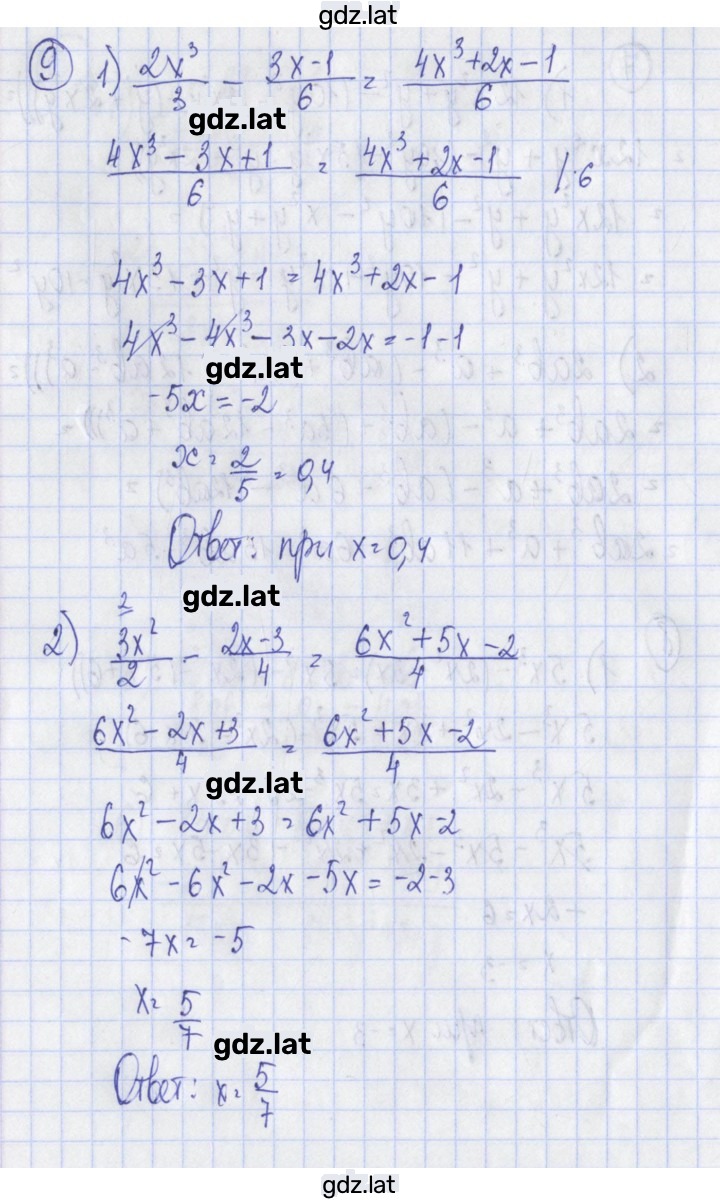 gdz.lat
9 1) 2x³/3 - (3x-1)/6 = (4x³+2x-1)/6
gdz.lat
(4x³-3x+1)/6 = (4x³+2x-1)/6 /·6
4x³-3x+1=4x³+2x-1
4x³-4x³-3x-2x=-1-1
gdz.lat
-5x=-2
x=2/5=0,4
Ответ: при x=0,4
gdz.lat
2) ²3x²/2 - (2x-3)/4 = (6x²+5x-2)/4
(6x²-2x+3)/4 = (6x²+5x-2)/4
gdz.lat
6x²-2x+3=6x²+5x-2
6x²-6x²-2x-5x=-2-3
-7x=-5
x=5/7
gdz.lat
Ответ: x=5/7
gdz.lat